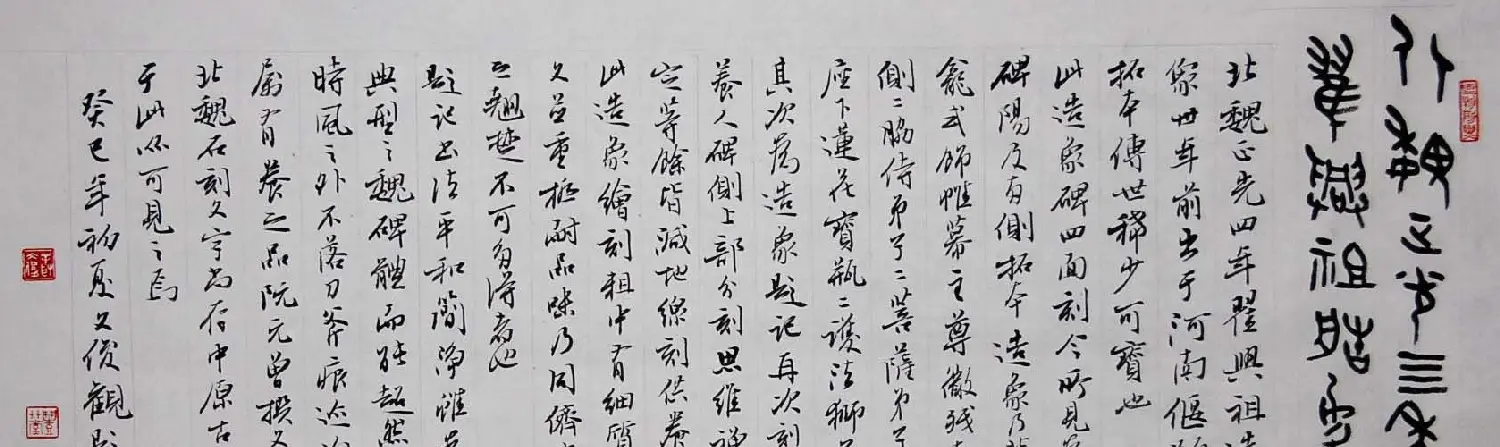 北魏正光四年
翟興祖造
北魏正光四年翟興祖造
象廿年前出于河南偃
拓本傳世稀少可寶也
此造象碑四面刻今所見
碑陽及右側拓本造象乃
龕式飾帷幕主尊微殘
側二脇侍弟子二菩薩弟子
座下蓮花寶瓶二護法獅
其次為造象題記再次刻
養人碑側上部分刻思維
等餘皆減地線刻供養
此造象繪刻粗中有細質
久且重極耐品味乃同儕
之翹楚不可多得者也
題記書法平和簡淨雖
典型之魏碑體而能超然
時風之外不落刀斧痕迹
屬有養之品阮元曾撰文
北魏石刻文字尚存中原古
于此亦可見之焉
癸巳年初夏文俊觀